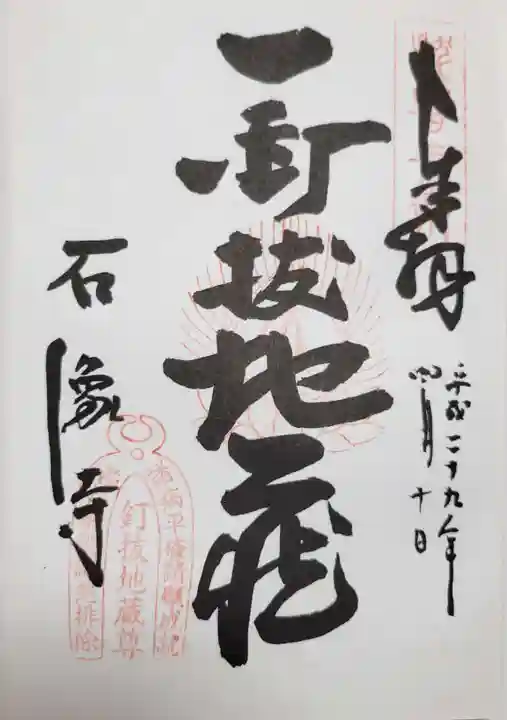 奉拝
平成二十九年
四月十日
釘抜地蔵
石像寺
釘抜地蔵尊